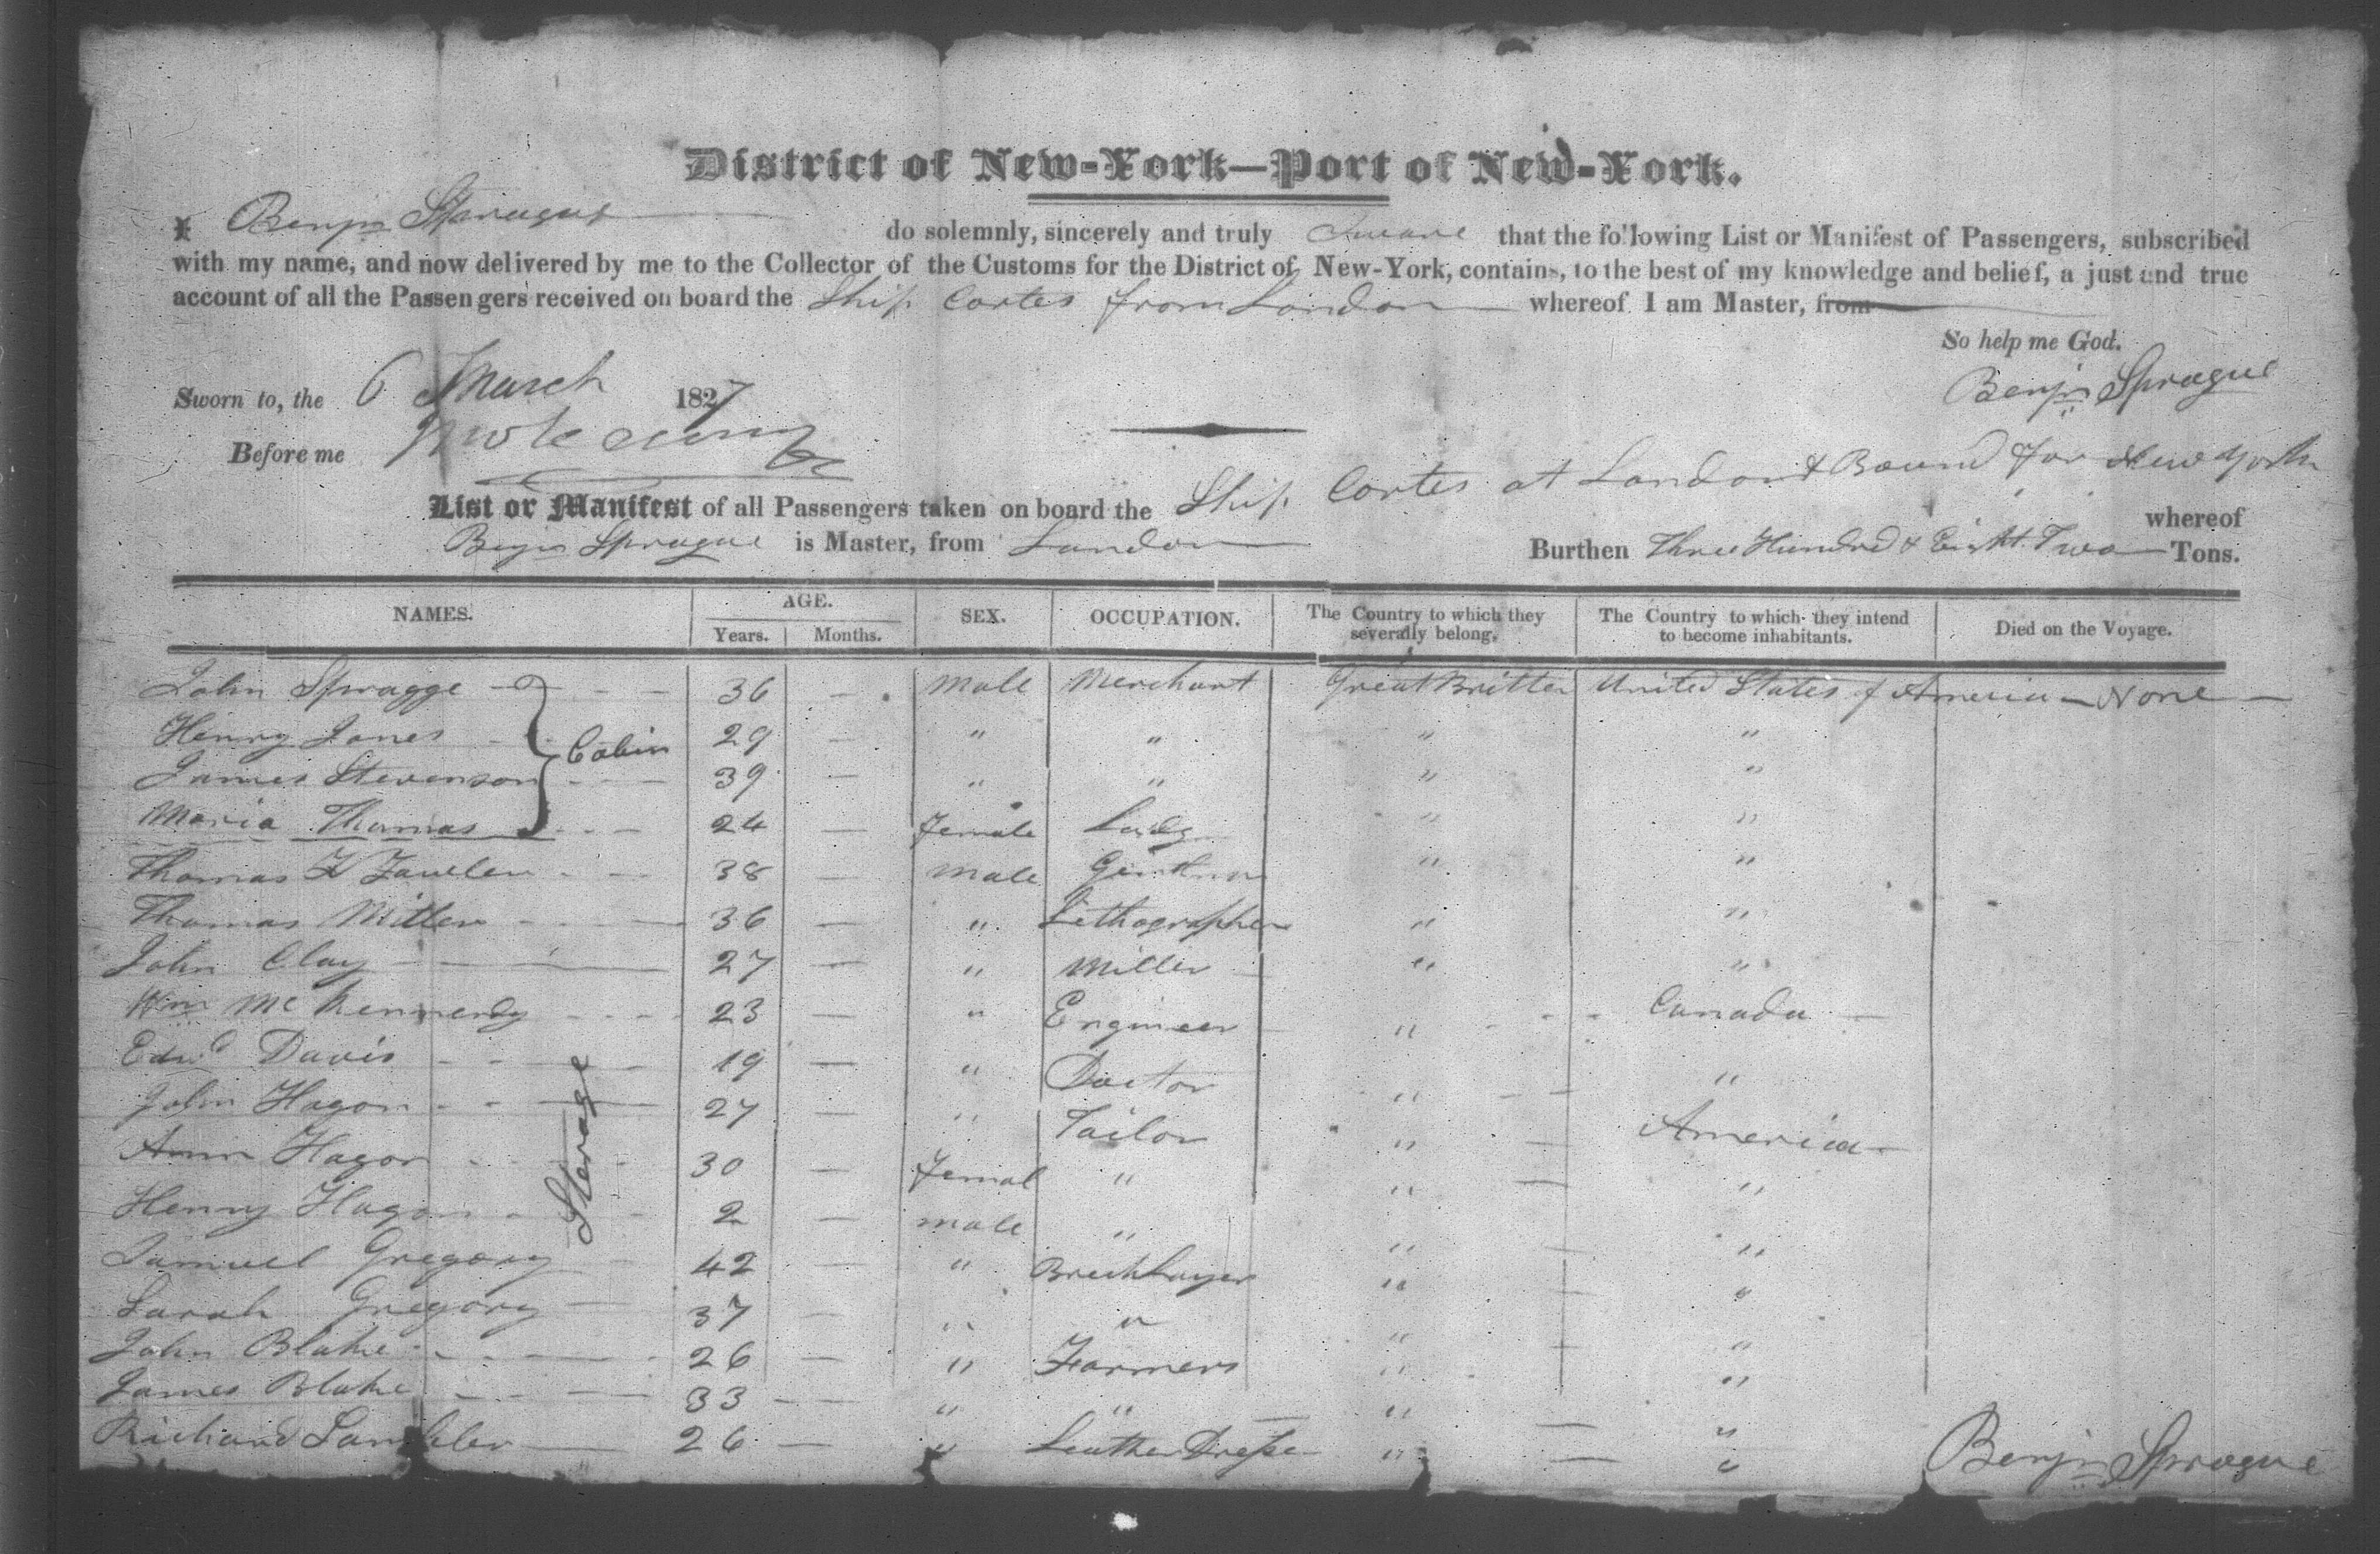 District of New-York—Port of New-York.
I Benjn Sprague do solemnly, sincerely and truly Sweare that the following List or Manifest of Passengers, subscribed
with my name, and now delivered by me to the Collector of the Customs for the District of New-York, contains, to the best of my knowledge and belief, a just and true
account of all the Passengers received on board the Ship Cortes from London whereof I am Master, from
So help me God.
Sworn to, the 6 March 1827 Benjn Sprague
Before me
List or Manifest of all Passengers taken on board the Ship Cortes at London & Bound for New York whereof
Benjn Sprague is Master, from London Burthen Three Hundred & Eight Two Tons.
NAMES. AGE. Years. Months. SEX. OCCUPATION. The Country to which they severally belong. The Country to which they intend to become inhabitants. Died on the Voyage.
John Spragge 36 — male Merchant Great Britten United States of America None
Henry Jones 29 — " " " "
Cabin
James Stevenson 39 — " " " "
Maria Thomas 24 — Female Lady " "
Thomas 38 — male " "
Thomas Miller 36 — " Lethographer " "
John Clay 27 — " Miller " "
Wm McKennerdy 23 — " Engineer " Canada
Edwd Davis 19 — " Doctor " "
Sterage
John Hagon 27 — " Tailor " America
Ann Hagon 30 — Femal " " "
Henry Hagon 2 — male " " "
Samuel Gregory 42 — " BrickLayer " "
Sarah Gregory 37 — " " " "
John Blake 26 — " Farmers " "
James Blake 33 — " " " "
Richard 26 — " Leather Dresser " "
Benjn Sprague